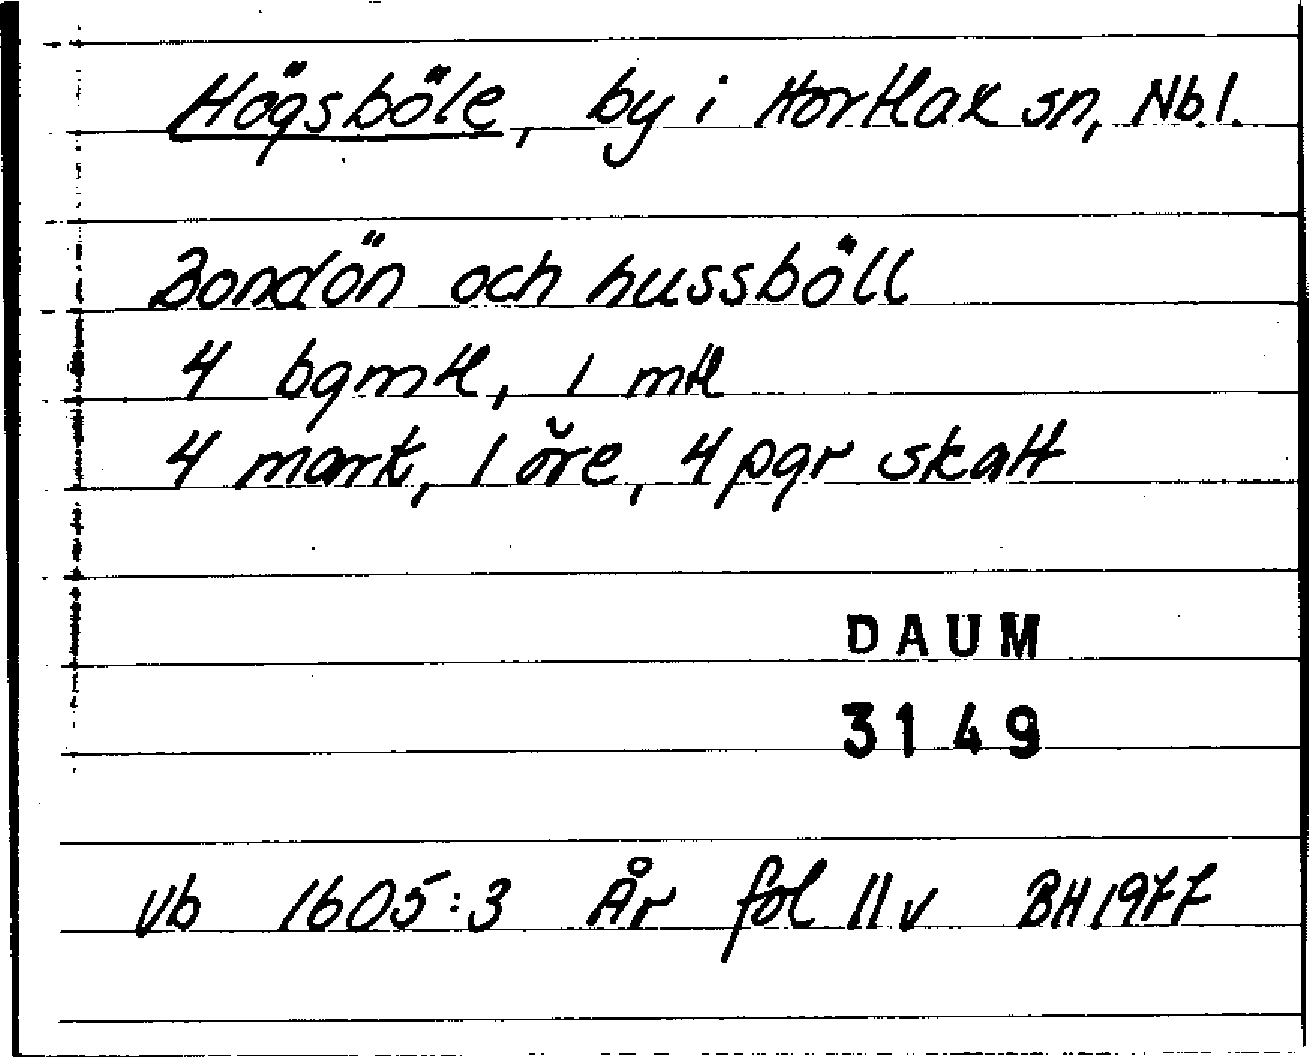 Högsböle, by i Hortlax sn, Nb.l.
Bondön och hussböll
4 bgmtl, 1 mtl
4 mark, 1 öre, 4 pgr skatt
DAUM
3149
Vb 1605:3 År fol 11v BH 1977